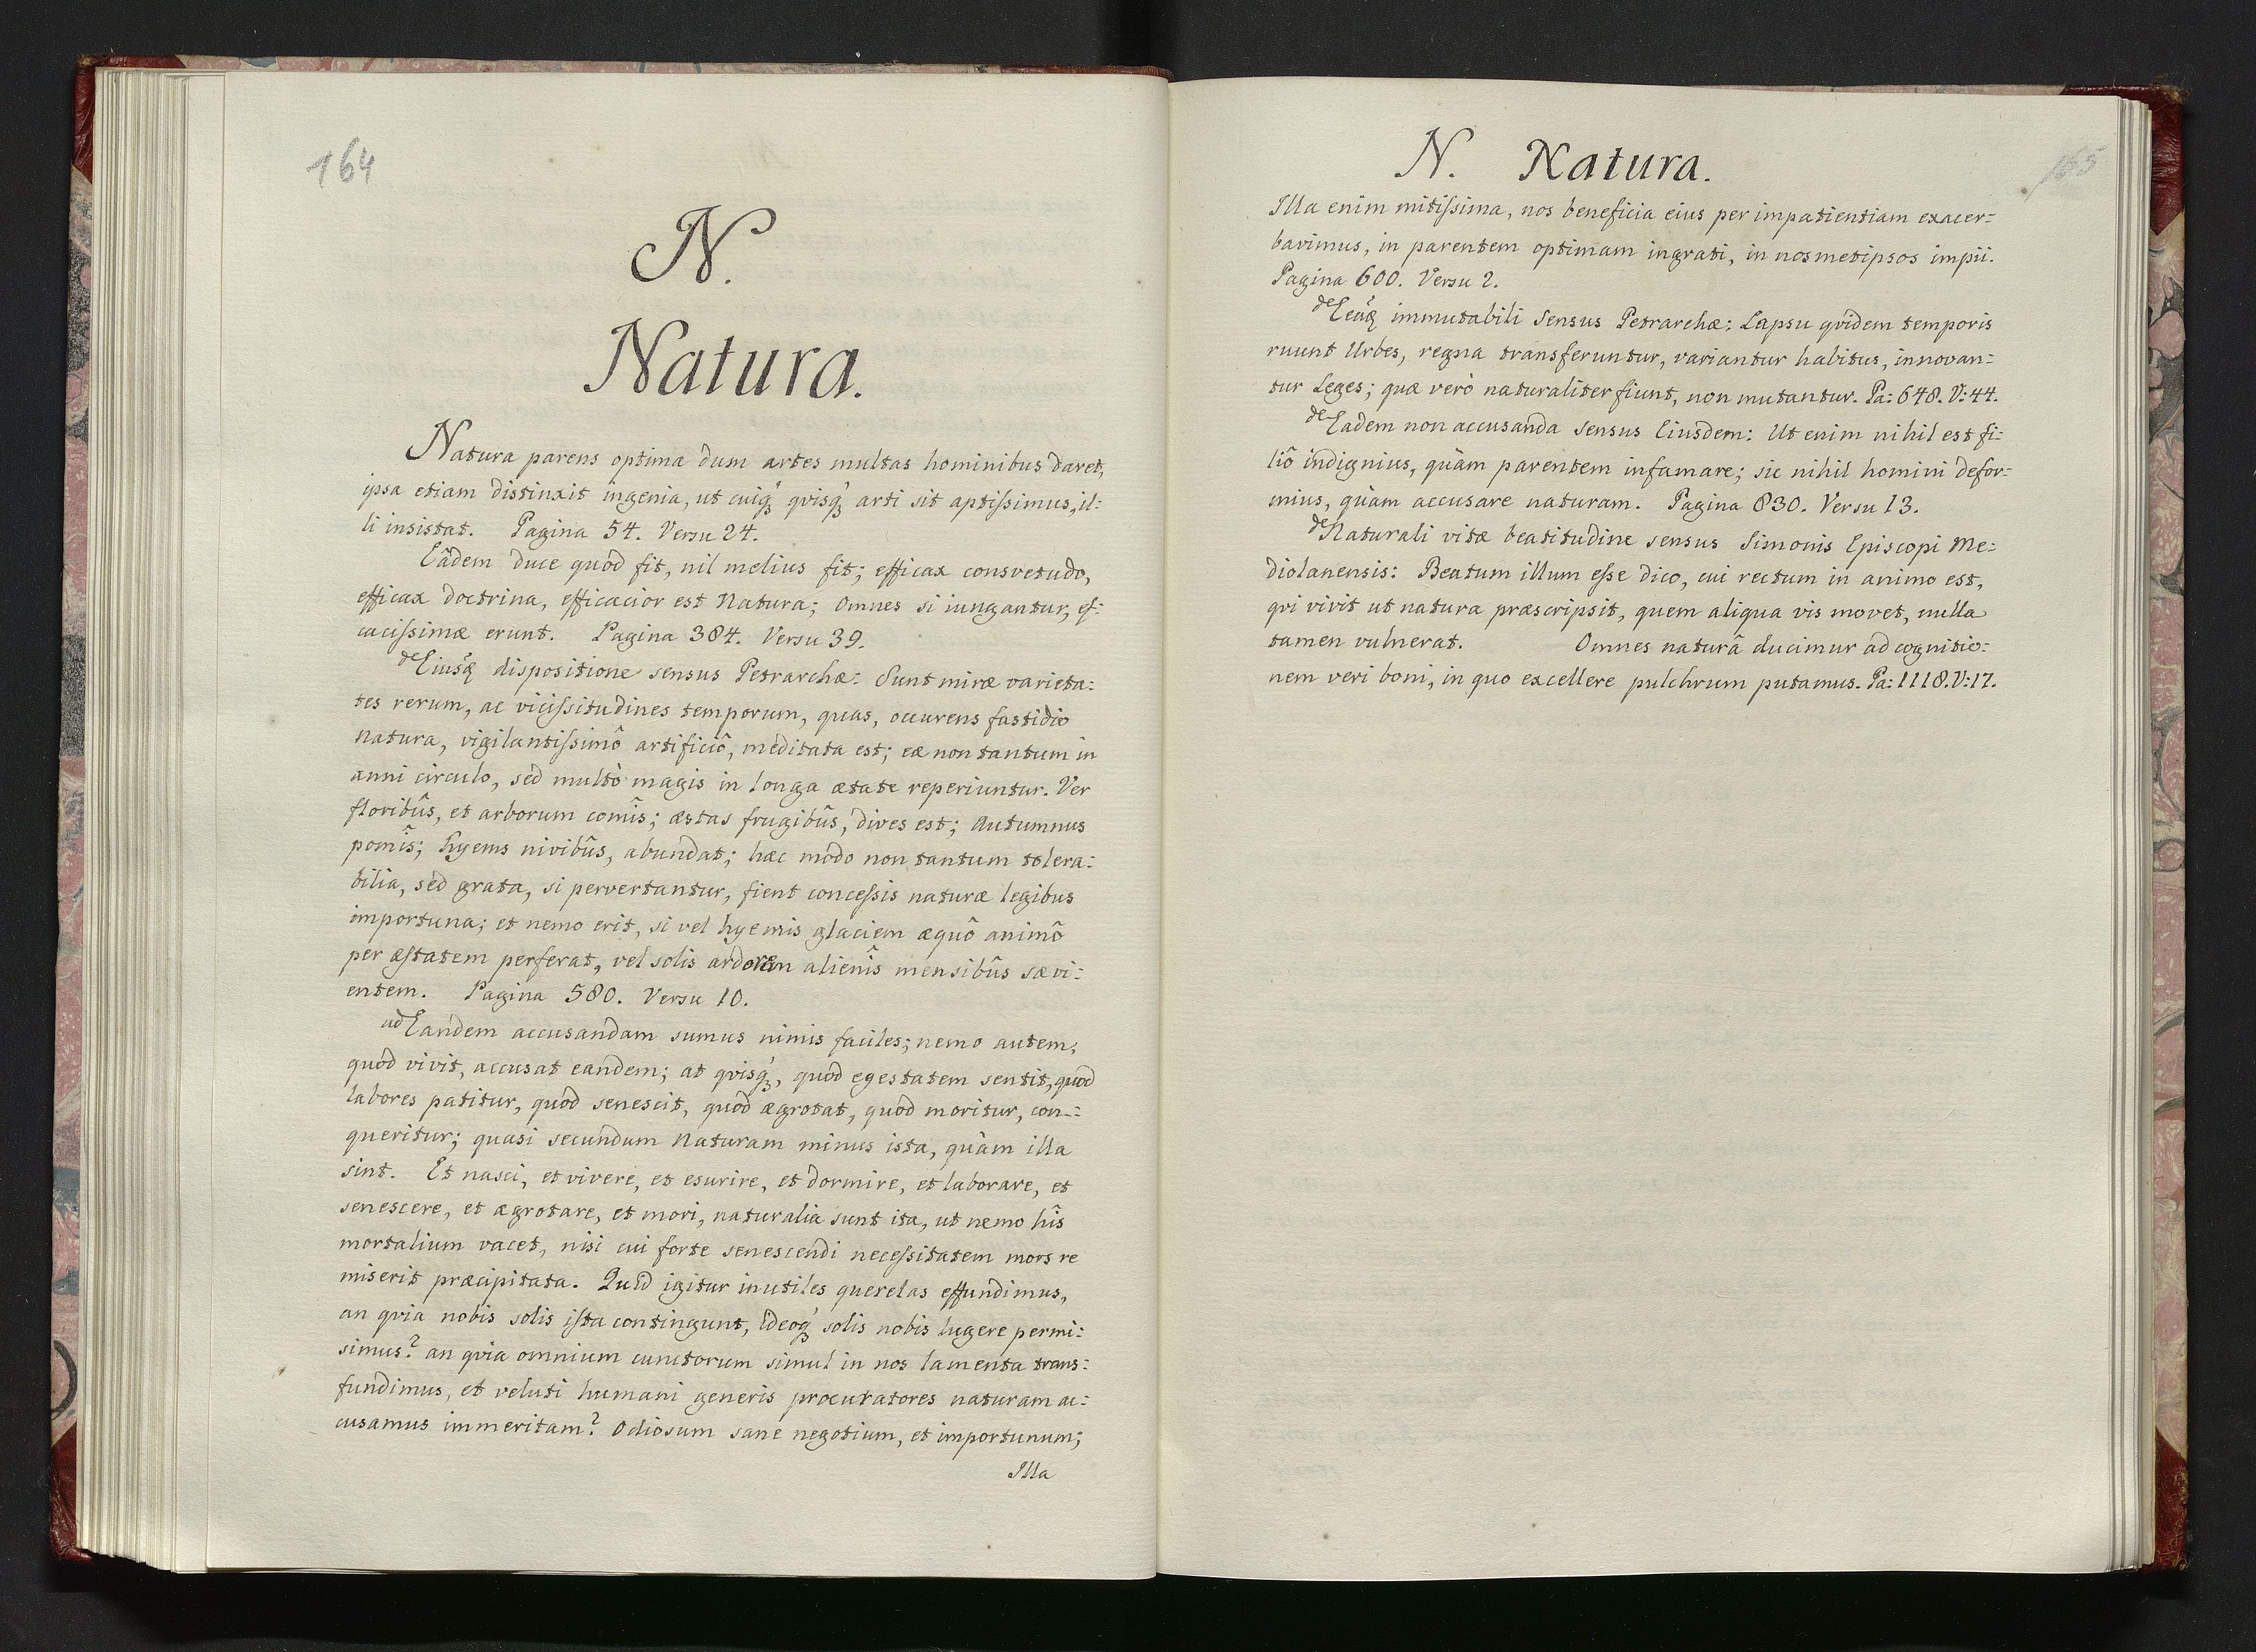 164
N.
Natura.
Natura parens optima dum artes multas hominibus daret,
ipsa etiam distinxit ingenia, ut cuiqꝫ qvisqꝫ arti sit aptiſsimus, il:
li insistat. Pagina 54. Versu 24.
Eâdem duce quòd fit, nil melius fit; efficax consvetudo,
efficax doctrina, efficacior est Natura; omnes si iungantur, ef:
caciſsimæ erunt. Pagina 384. Versu 39.
de Eiusq dispositione sensus Petrarchæ: Sunt miræ varieta:
tes rerum, ac viciſsitudines temporum, quas, occurens fastidio
natura, vigilantiſsimô artificiô, meditata est; eæ non tantum in
anni circulo, sed multò magis in longa ætate reperiuntur. Ver
floribûs, et arborum comîs; æstas frugibûs, dives est; Autumnus
pomîs; hyems nivibûs, abundat; hæc modo non tantum tolera:
bilia, sed grata, si pervertantur, fient conceſsis naturæ legibus
importuna; et nemo erit, si vel hyemis glaciem æquô animô
per æſtatem perferat, vel solis ardorem alienîs mensibûs sævi:
entem. Pagina 580. Versu 10.
ad Eandem accusandam sumus nimis faciles; nemo autem,
quòd vivit, accusat eandem; at qvisqꝫ, quòd egestatem sentit, quòd
labores patitur, quòd senescit, quòd ægrotat, quòd moritur, con-:
queritur; quasi secundum Naturam minus ista, quàm illa
sint. Et nasci, et vivere, et esurire, et dormire, et laborare, et
senescere, et ægrotare, et mori, naturalia sunt ita, ut nemo hîs
mortalium vacet, nisi cui forte senescendi neceſsitatem mors re
miserit præcipitata. Quid igitur inutiles querelas effundimus,
an qvia nobis solis iſta contingunt, ideoqꝫ solis nobis lugere permi:
simus? an qvia omnium cunctorum simul in nos lamenta trans:
fundimus, et veluti humani generis procuratores naturam ac:
cusamus immeritam? Odiosum sane negotium, et importunum;
Illa
N. Natura.
165
Illa enim mitiſsima, nos beneficia eius per impatientiam exacer=
bavimus, in parentem optimam ingrati, in nosmetipsos impii.
Pagina 600. Versu 2.
de Eeaq immutabili sensus Petrarchæ: Lapsu qvidem temporis
ruunt Urbes, regna transferuntur, variantur habitus, innovan=
tur Leges; quæ verò naturaliter fiunt, non mutantur. Pa: 648. V: 44.
de Eadem non accusanda sensus Eiusdem: Ut enim nihil est fi:
liô indignius, quàm parentem infamare; sic nihil homini defor=
mius, quàm accusare naturam. Pagina 830. Versu 13.
de Naturali vitæ beatitudine sensus Simonis Episcopi Me:
diolanensis: Beatum illum eſse dico, cui rectum in animo est,
qvi vivit ut natura præscripsit, quem aliqua vis movet, nulla
tamen vulnerat. Omnes naturâ ducimur ad cognitio:
nem veri boni, in quo excellere pulchrum putamus. Pa: 1118. V: 17.